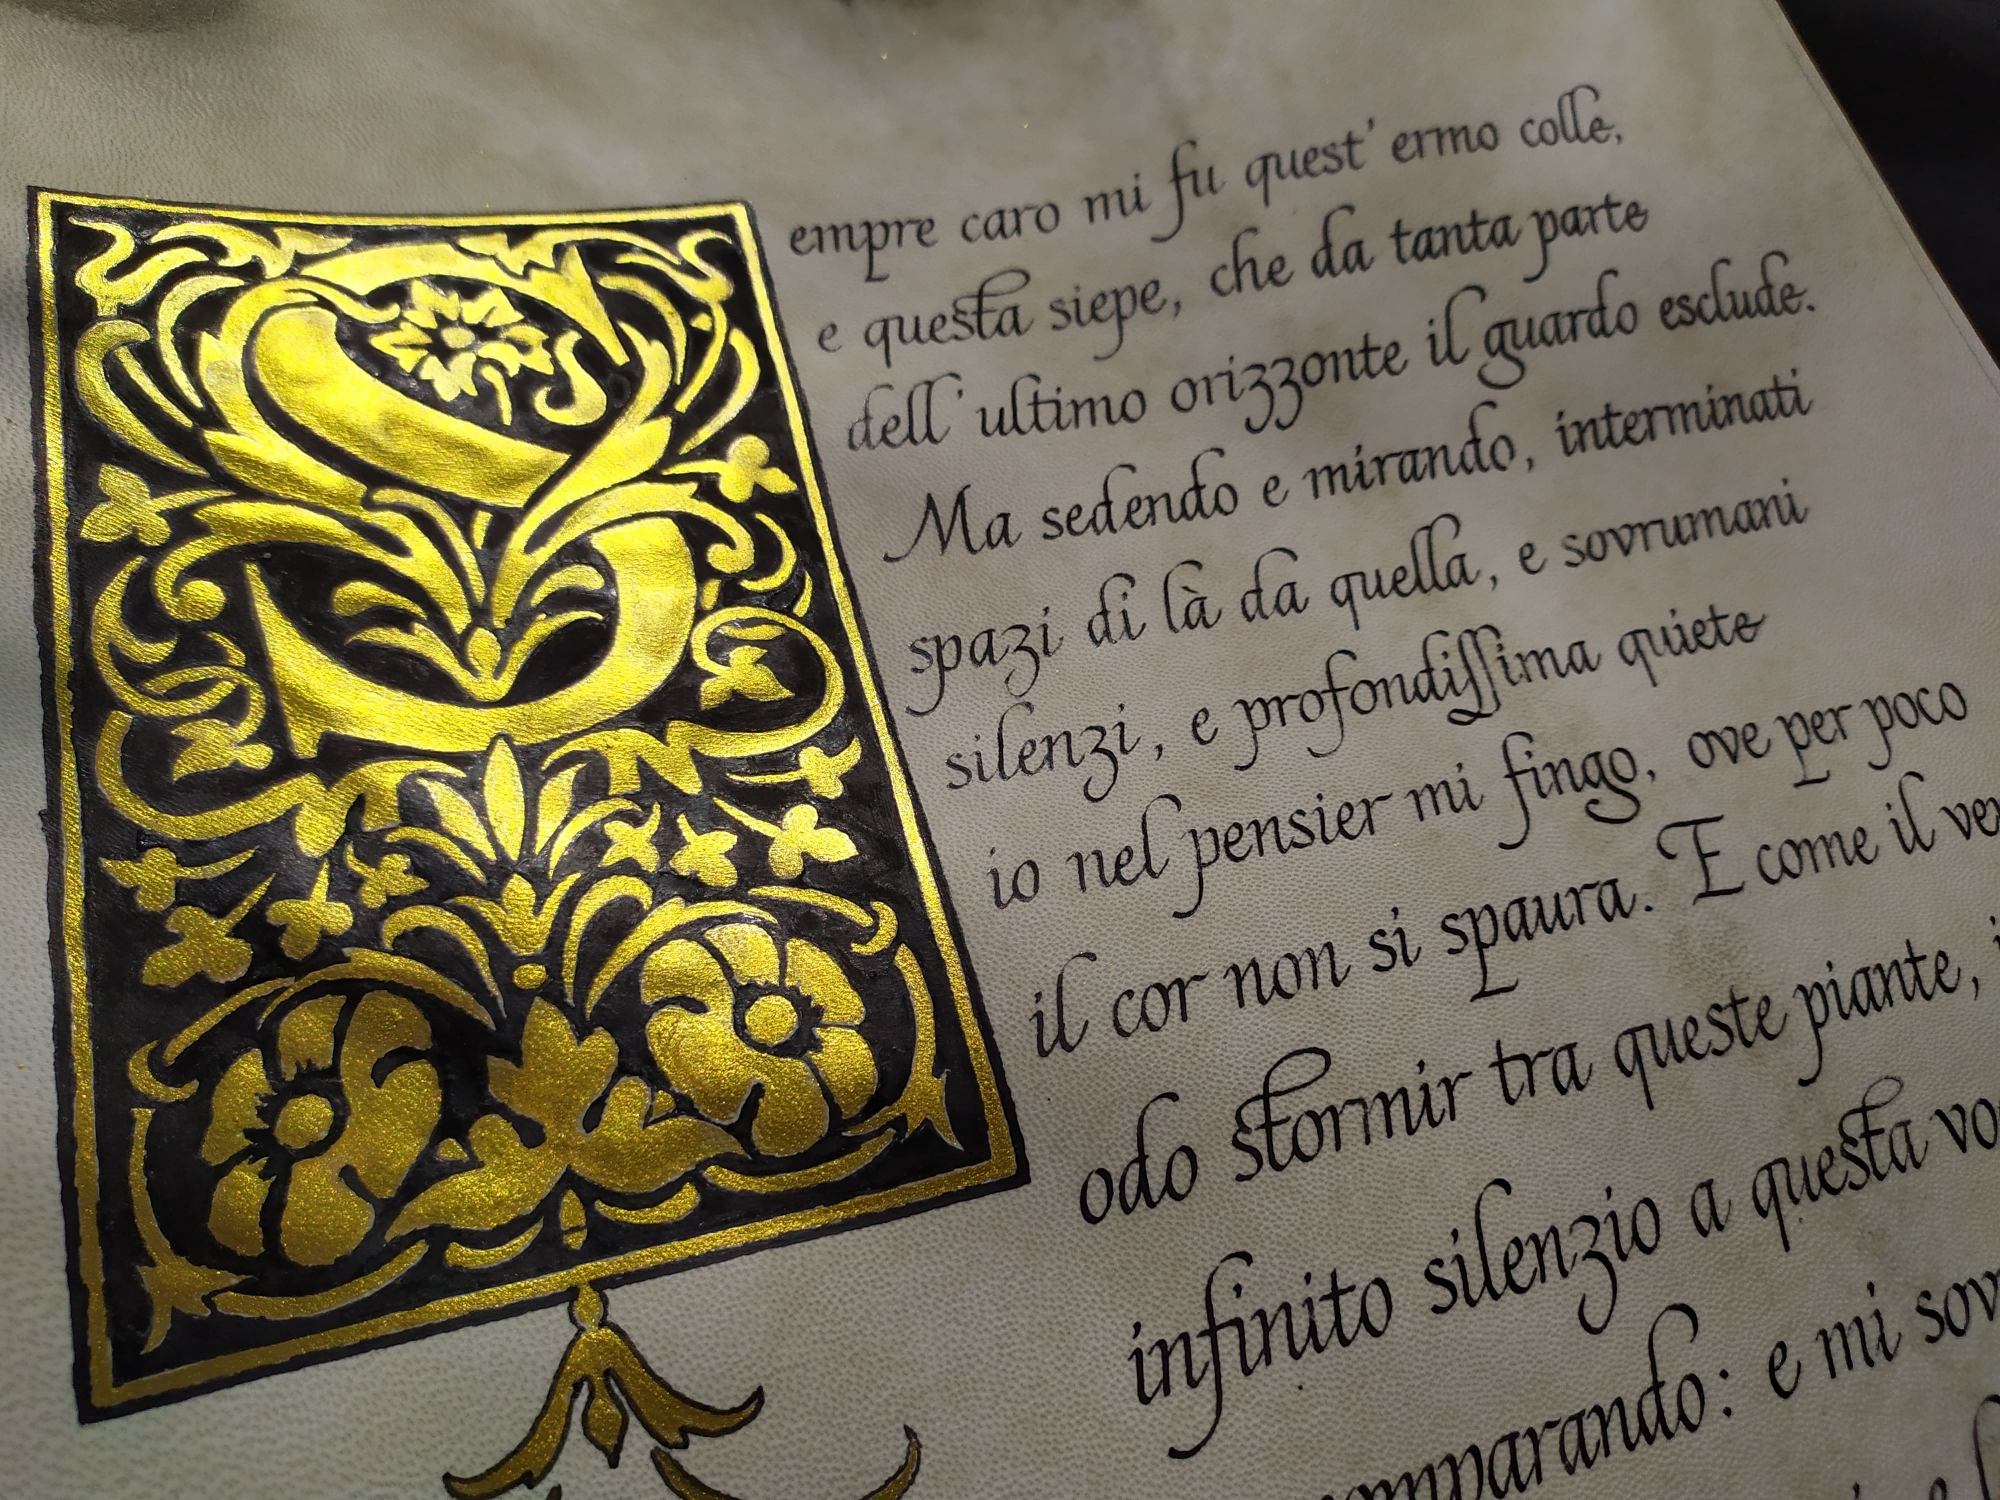 S
empre caro mi fu quest' ermo colle,
e questa siepe, che da tanta parte
dell' ultimo orizzonte il guardo esclude.
Ma sedendo e mirando, interminati
spazi di là da quella, e sovrumani
silenzi, e profondissima quiete
io nel pensier mi fingo, ove per poco
il cor non si spaura. E come il
odo stormir tra queste piante,
infinito silenzio a questa
comparando: e mi